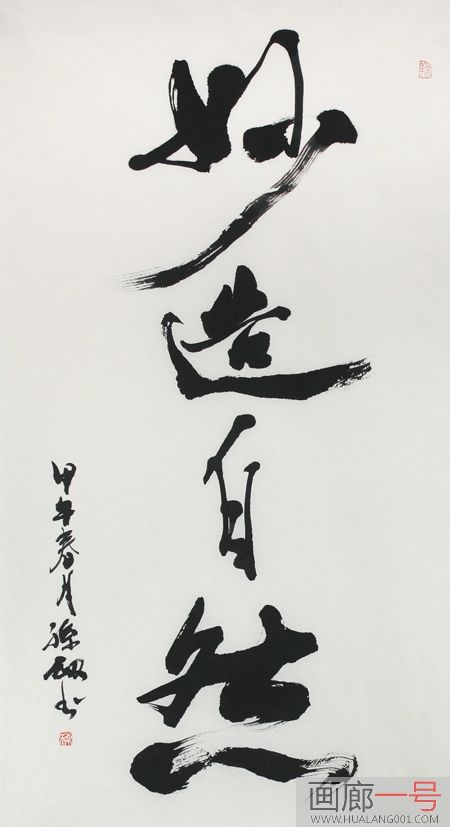 妙造自然
甲午春月
画廊一号
WWW.HUALANG001.COM